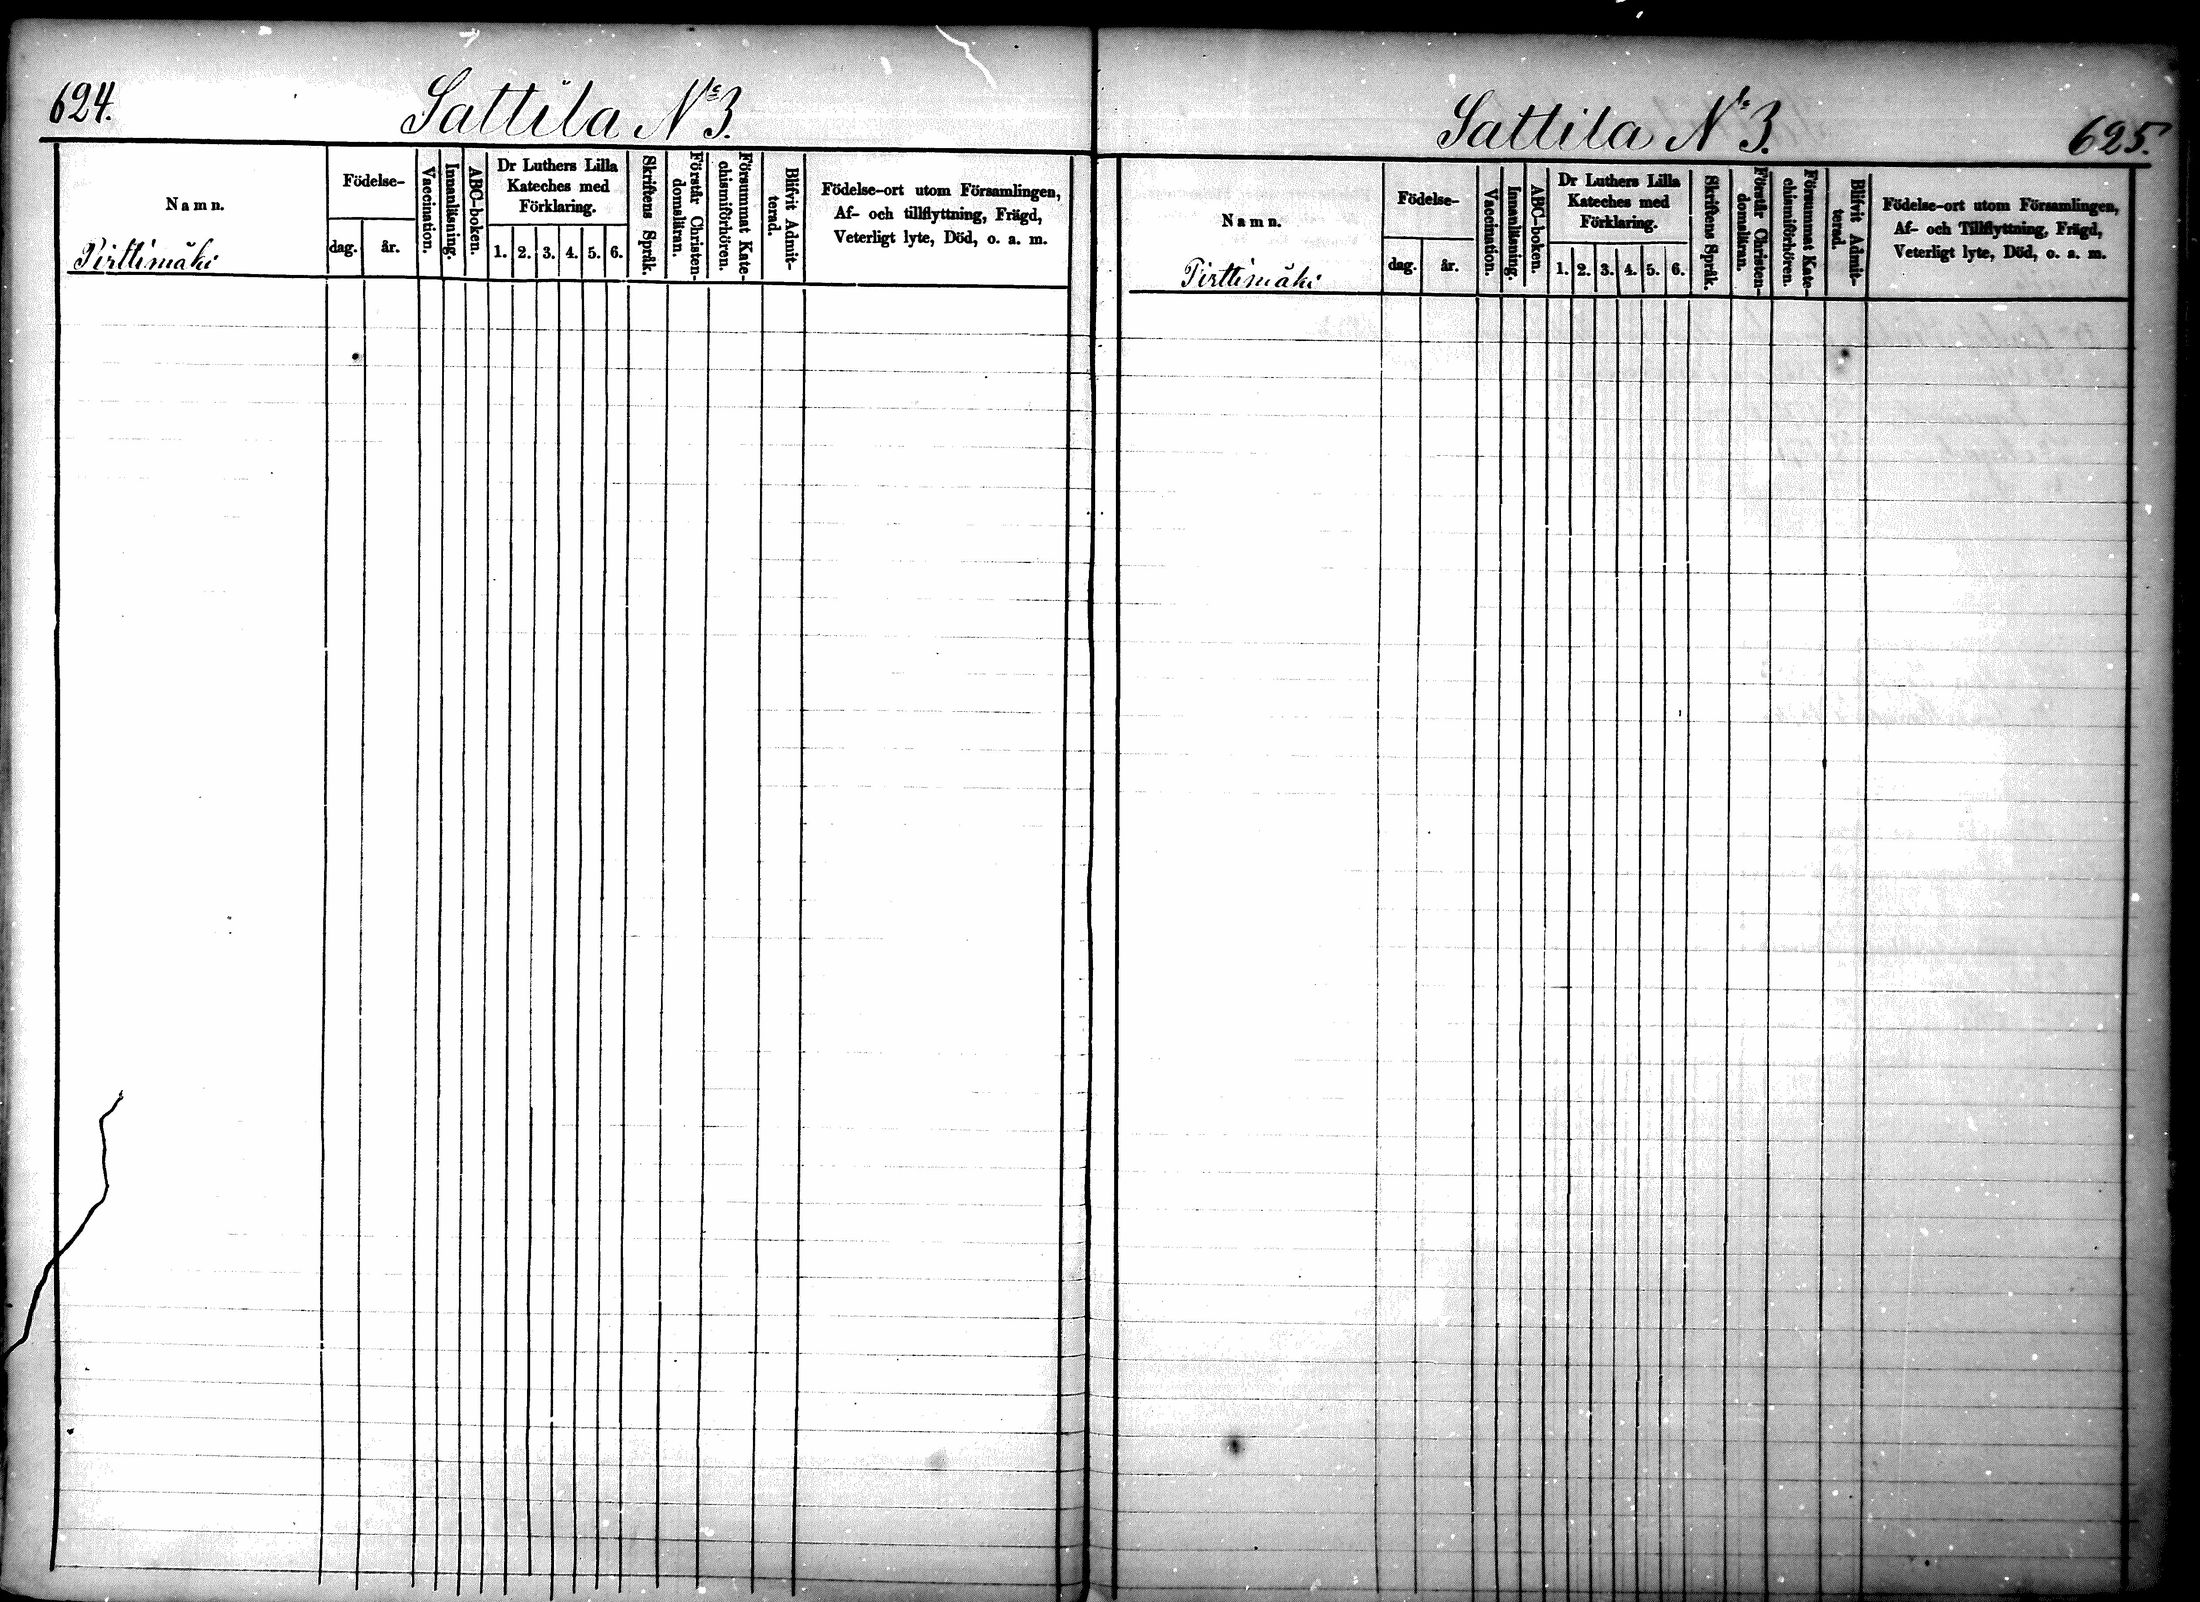 624.
Sattila No 3.
Namn.
Födelse-
dag.
år.
Vaccination.
Innanläsning.
ABC-boken.
Dr Luthers Lilla
Kateches med
Förklaring.
1. 2. 3. 4. 5. 6.
Skriftens Språk.
Förstår Christen-
domsläran.
Försummat Kate-
chismiförhören.
Blifvit Admit-
terad.
Födelse-ort utom Församlingen,
Af- och tillflyttning, Frägd,
Veterligt lyte, Död, o. a. m.
Pirttimäki
Sattila No 3.
625.
Namn.
Födelse-
dag.
år.
Vaccination.
Innanläsning.
ABC-boken.
Dr Luthers Lilla
Kateches med
Förklaring.
1. 2. 3. 4. 5. 6.
Skriftens Språk.
Förstår Christen-
domsläran.
Försummat Kate-
chismiförhören.
Blifvit Admit-
terad.
Födelse-ort utom Församlingen,
Af- och Tillflyttning, Frägd,
Veterligt lyte, Död, o. a. m.
Pirttimäki